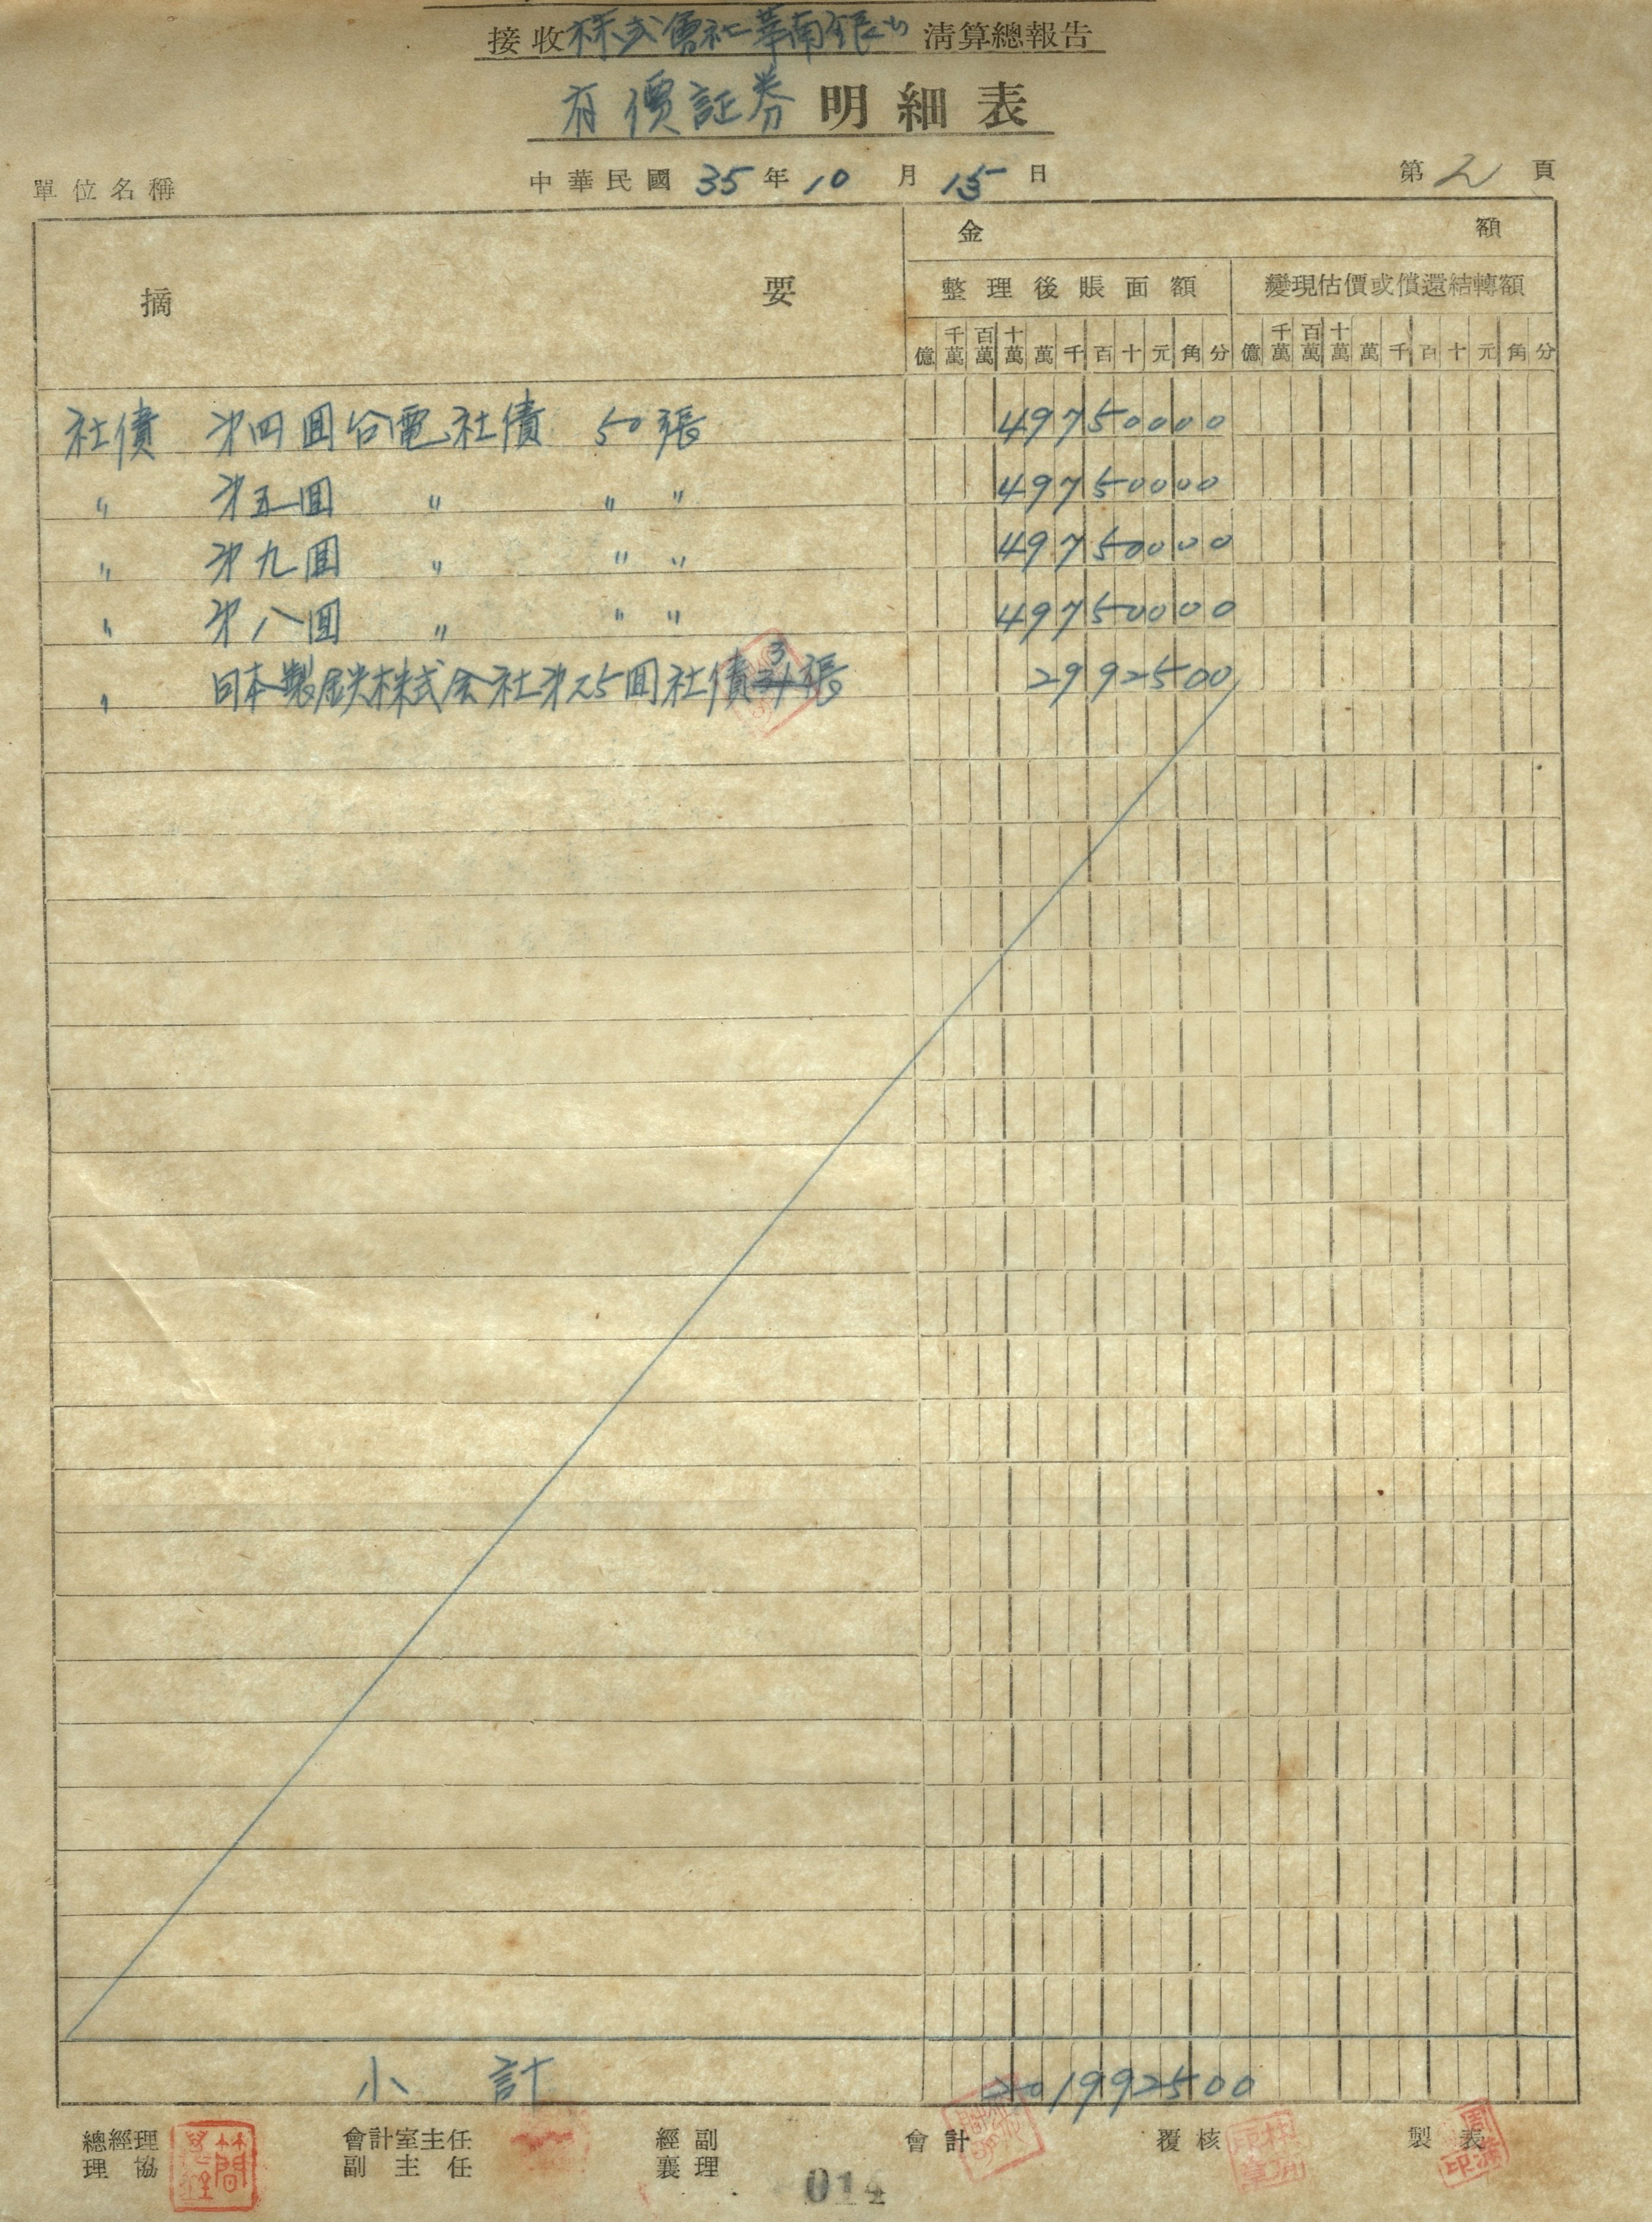 接收株式會社華南銀行清算總報告
有價証券明細表
單位名稱 中華民國35年10月15日 第2頁
摘要 金額
整理後賬面額 變現估價或償還結轉額
億 千萬 百萬 十萬 萬 千 百 十 元 角 分 億 千萬 百萬 十萬 萬 千 百 十 元 角 分
社債 第四回台電社債 50張 49750000
〃 第五回 〃 〃 〃 49750000
〃 第九回 〃 〃 〃 49750000
〃 第八回 〃 〃 〃 49750000
〃 日本製鉄株式会社第25回社債3張 2992500
小計 201992500
總經理 會計室主任 經副 會計 覆核 製表
協理 副主任 襄理
014